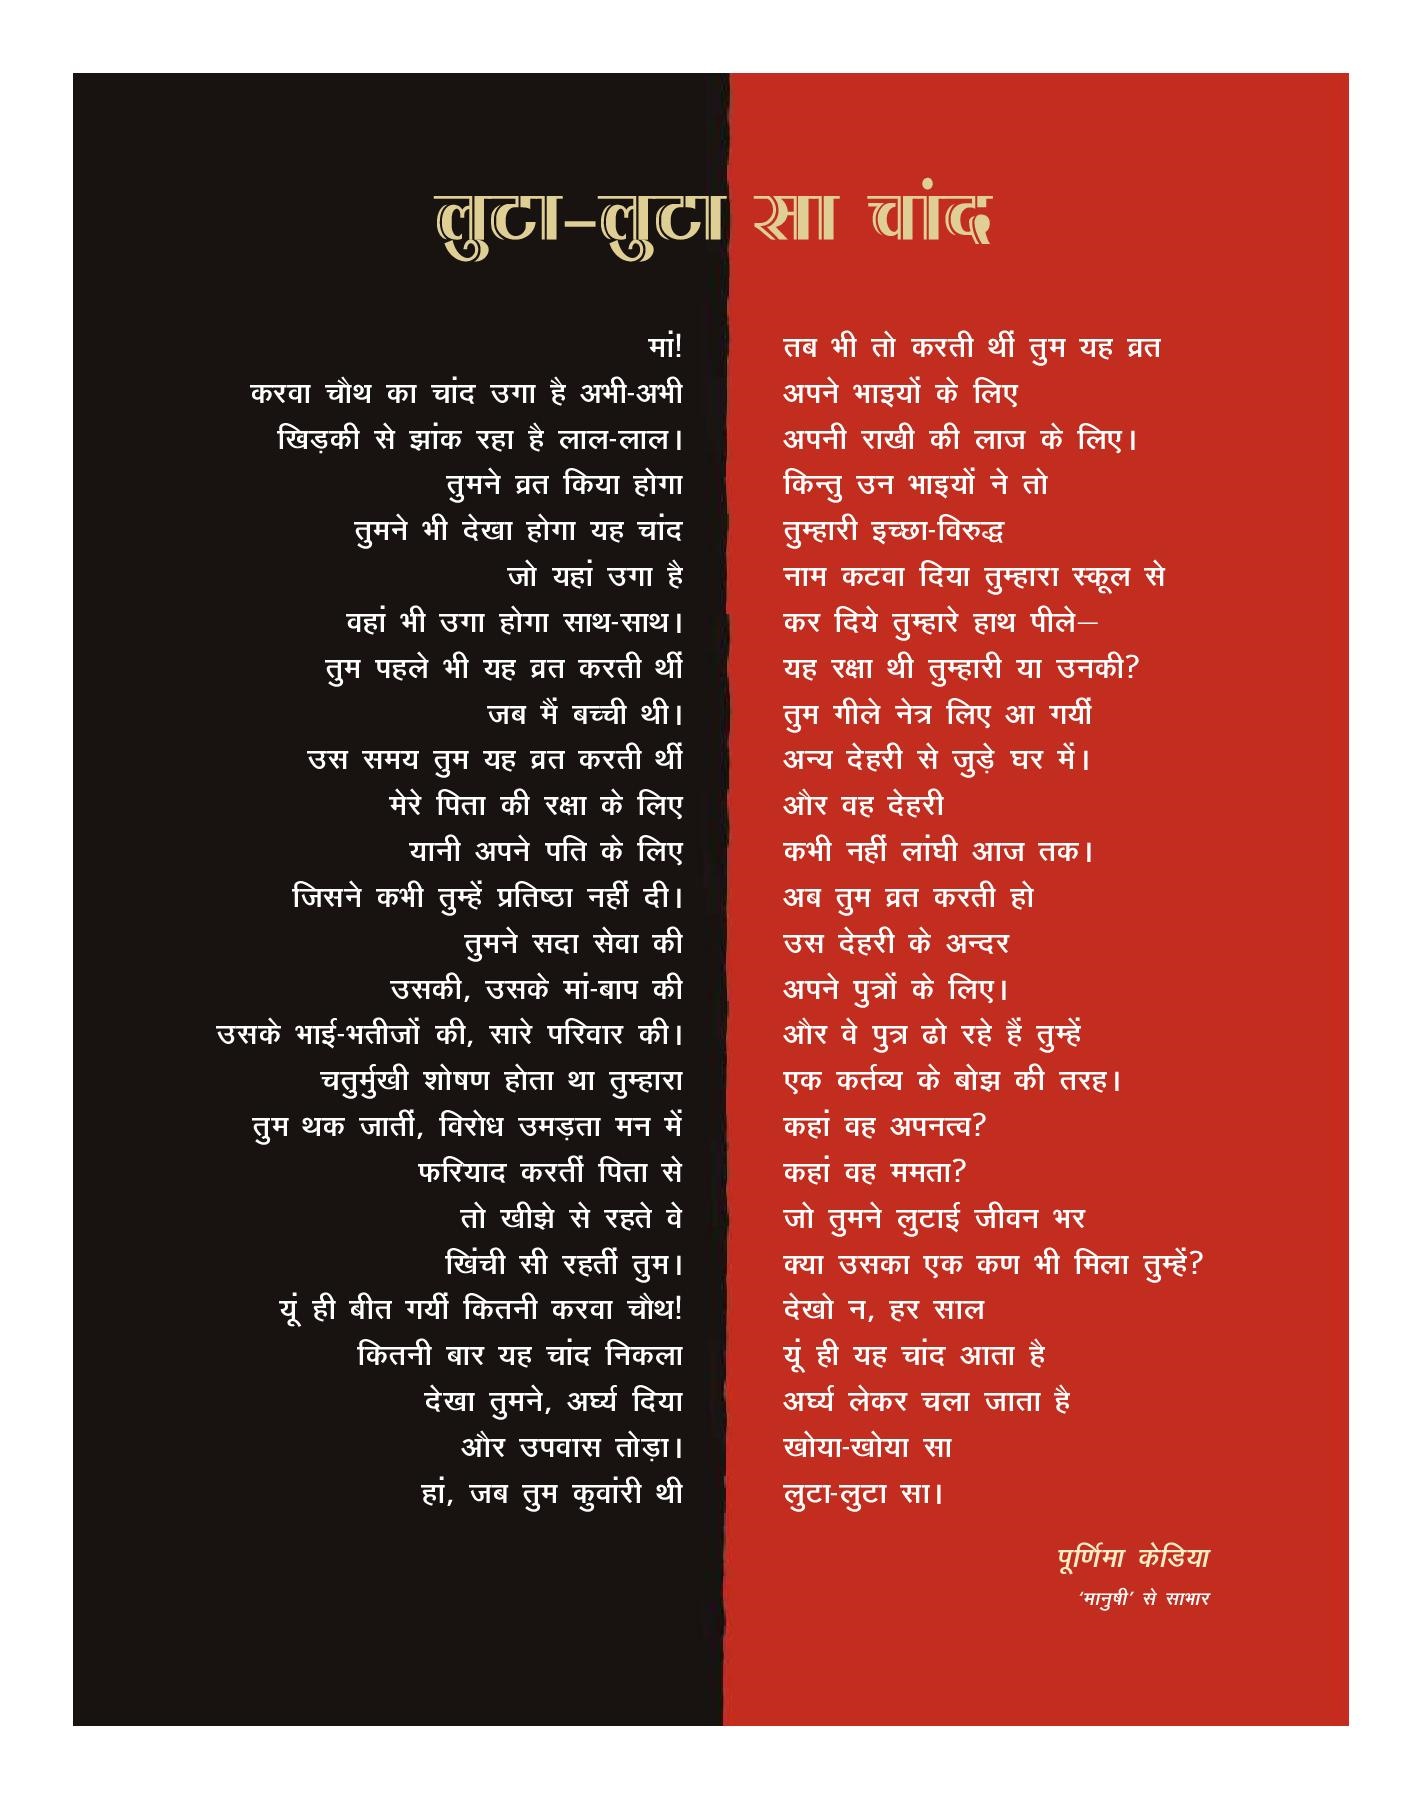 लुटा-लुटा सा चांद
मां!
करवा चौथ का चांद उगा है अभी-अभी
खिड़की से झांक रहा है लाल-लाल।
तुमने व्रत किया होगा
तुमने भी देखा होगा यह चांद
जो यहां उगा है
वहां भी उगा होगा साथ-साथ।
तुम पहले भी यह व्रत करती थीं
जब मैं बच्ची थी।
उस समय तुम यह व्रत करती थीं
मेरे पिता की रक्षा के लिए
यानी अपने पति के लिए
जिसने कभी तुम्हें प्रतिष्ठा नहीं दी।
तुमने सदा सेवा की
उसकी, उसके मां-बाप की
उसके भाई-भतीजों की, सारे परिवार की।
चतुर्मुखी शोषण होता था तुम्हारा
तुम थक जातीं, विरोध उमड़ता मन में
फरियाद करतीं पिता से
तो खीझे से रहते वे
खिंची सी रहतीं तुम।
यूं ही बीत गयीं कितनी करवा चौथ!
कितनी बार यह चांद निकला
देखा तुमने, अर्घ्य दिया
और उपवास तोड़ा।
हां, जब तुम कुवांरी थी
तब भी तो करती थीं तुम यह व्रत
अपने भाइयों के लिए
अपनी राखी की लाज के लिए।
किन्तु उन भाइयों ने तो
तुम्हारी इच्छा-विरुद्ध
नाम कटवा दिया तुम्हारा स्कूल से
कर दिये तुम्हारे हाथ पीले—
यह रक्षा थी तुम्हारी या उनकी?
तुम गीले नेत्र लिए आ गयीं
अन्य देहरी से जुड़े घर में।
और वह देहरी
कभी नहीं लांघी आज तक।
अब तुम व्रत करती हो
उस देहरी के अन्दर
अपने पुत्रों के लिए।
और वे पुत्र ढो रहे हैं तुम्हें
एक कर्तव्य के बोझ की तरह।
कहां वह अपनत्व?
कहां वह ममता?
जो तुमने लुटाई जीवन भर
क्या उसका एक कण भी मिला तुम्हें?
देखो न, हर साल
यूं ही यह चांद आता है
अर्घ्य लेकर चला जाता है
खोया-खोया सा
लुटा-लुटा सा।
पूर्णिमा केडिया
‘मानुषी’ से साभार